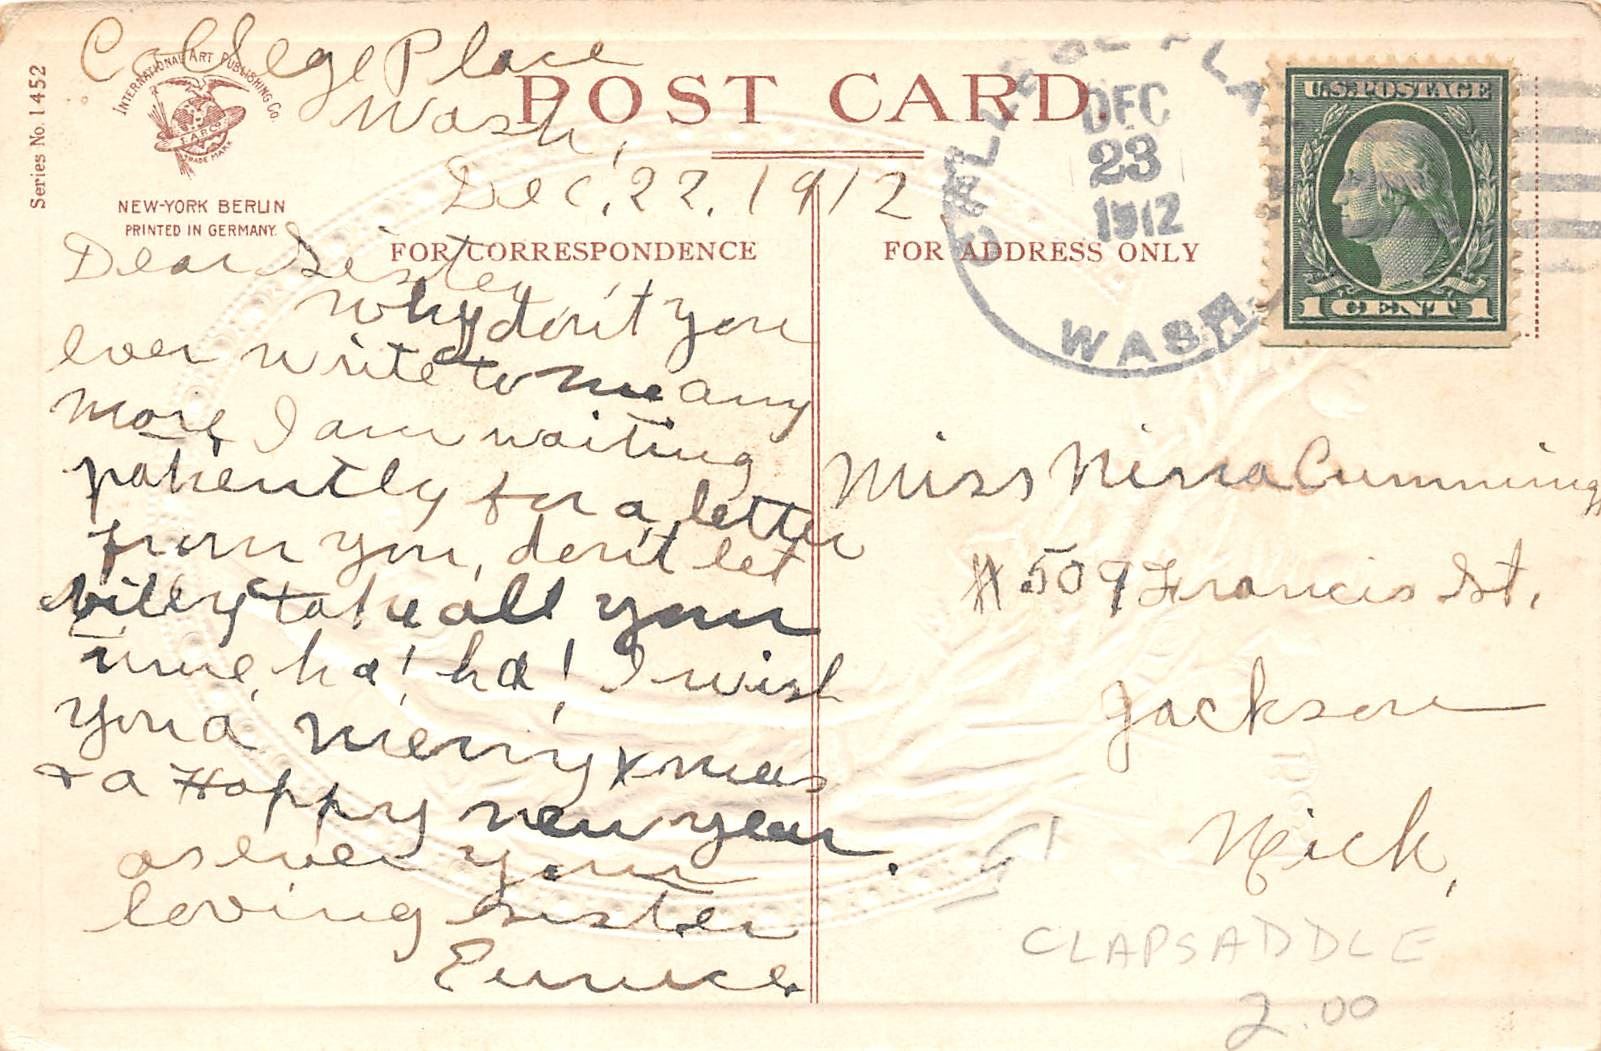 College Place
Wash,
Dec, 22, 1912
Series No. 1452
INTERNATIONAL ART PUBLISHING CO.
I.A.P.CO.
TRADE MARK
NEW-YORK BERLIN
PRINTED IN GERMANY.
POST CARD.
FOR CORRESPONDENCE
FOR ADDRESS ONLY
Dear Sister,
why don't you
ever write to me any
more, I am waiting
patiently for a letter
from you, don't let
billy take all your
time, ha! ha! I wish
you a merry xmas
+ a Happy new year.
as ever your
loving sister
Eunice.
COLLEGE PLACE
DEC
23
1912
WASH.
U.S. POSTAGE
1 CENT 1
Miss Nina Cummings
# 509 Francis St,
Jackson
Mich,
CLAPSADDLE
2.00